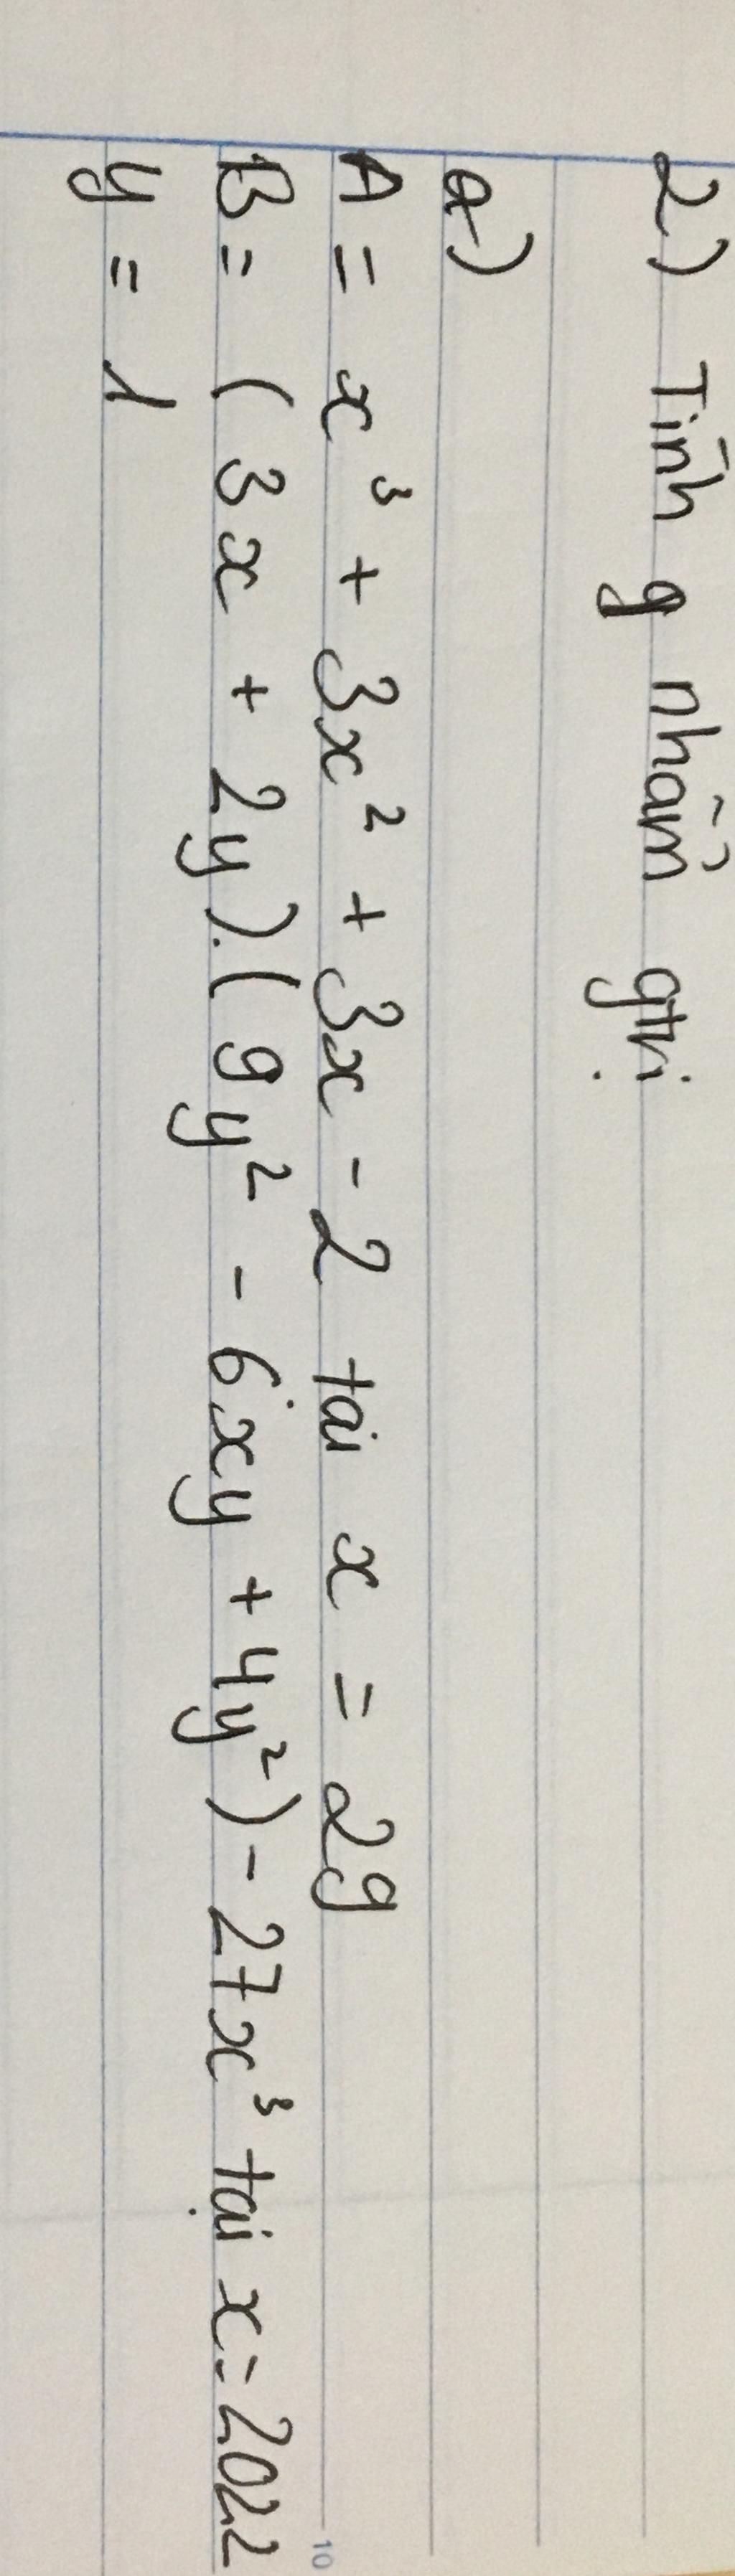 2) Tính g nhẩm gtrị
a)
A = x³ + 3x² + 3x - 2 tai x = 29
B = (3x + 2y).(9y² - 6xy + 4y²) - 27x³ tại x = 2022
y = 1
10